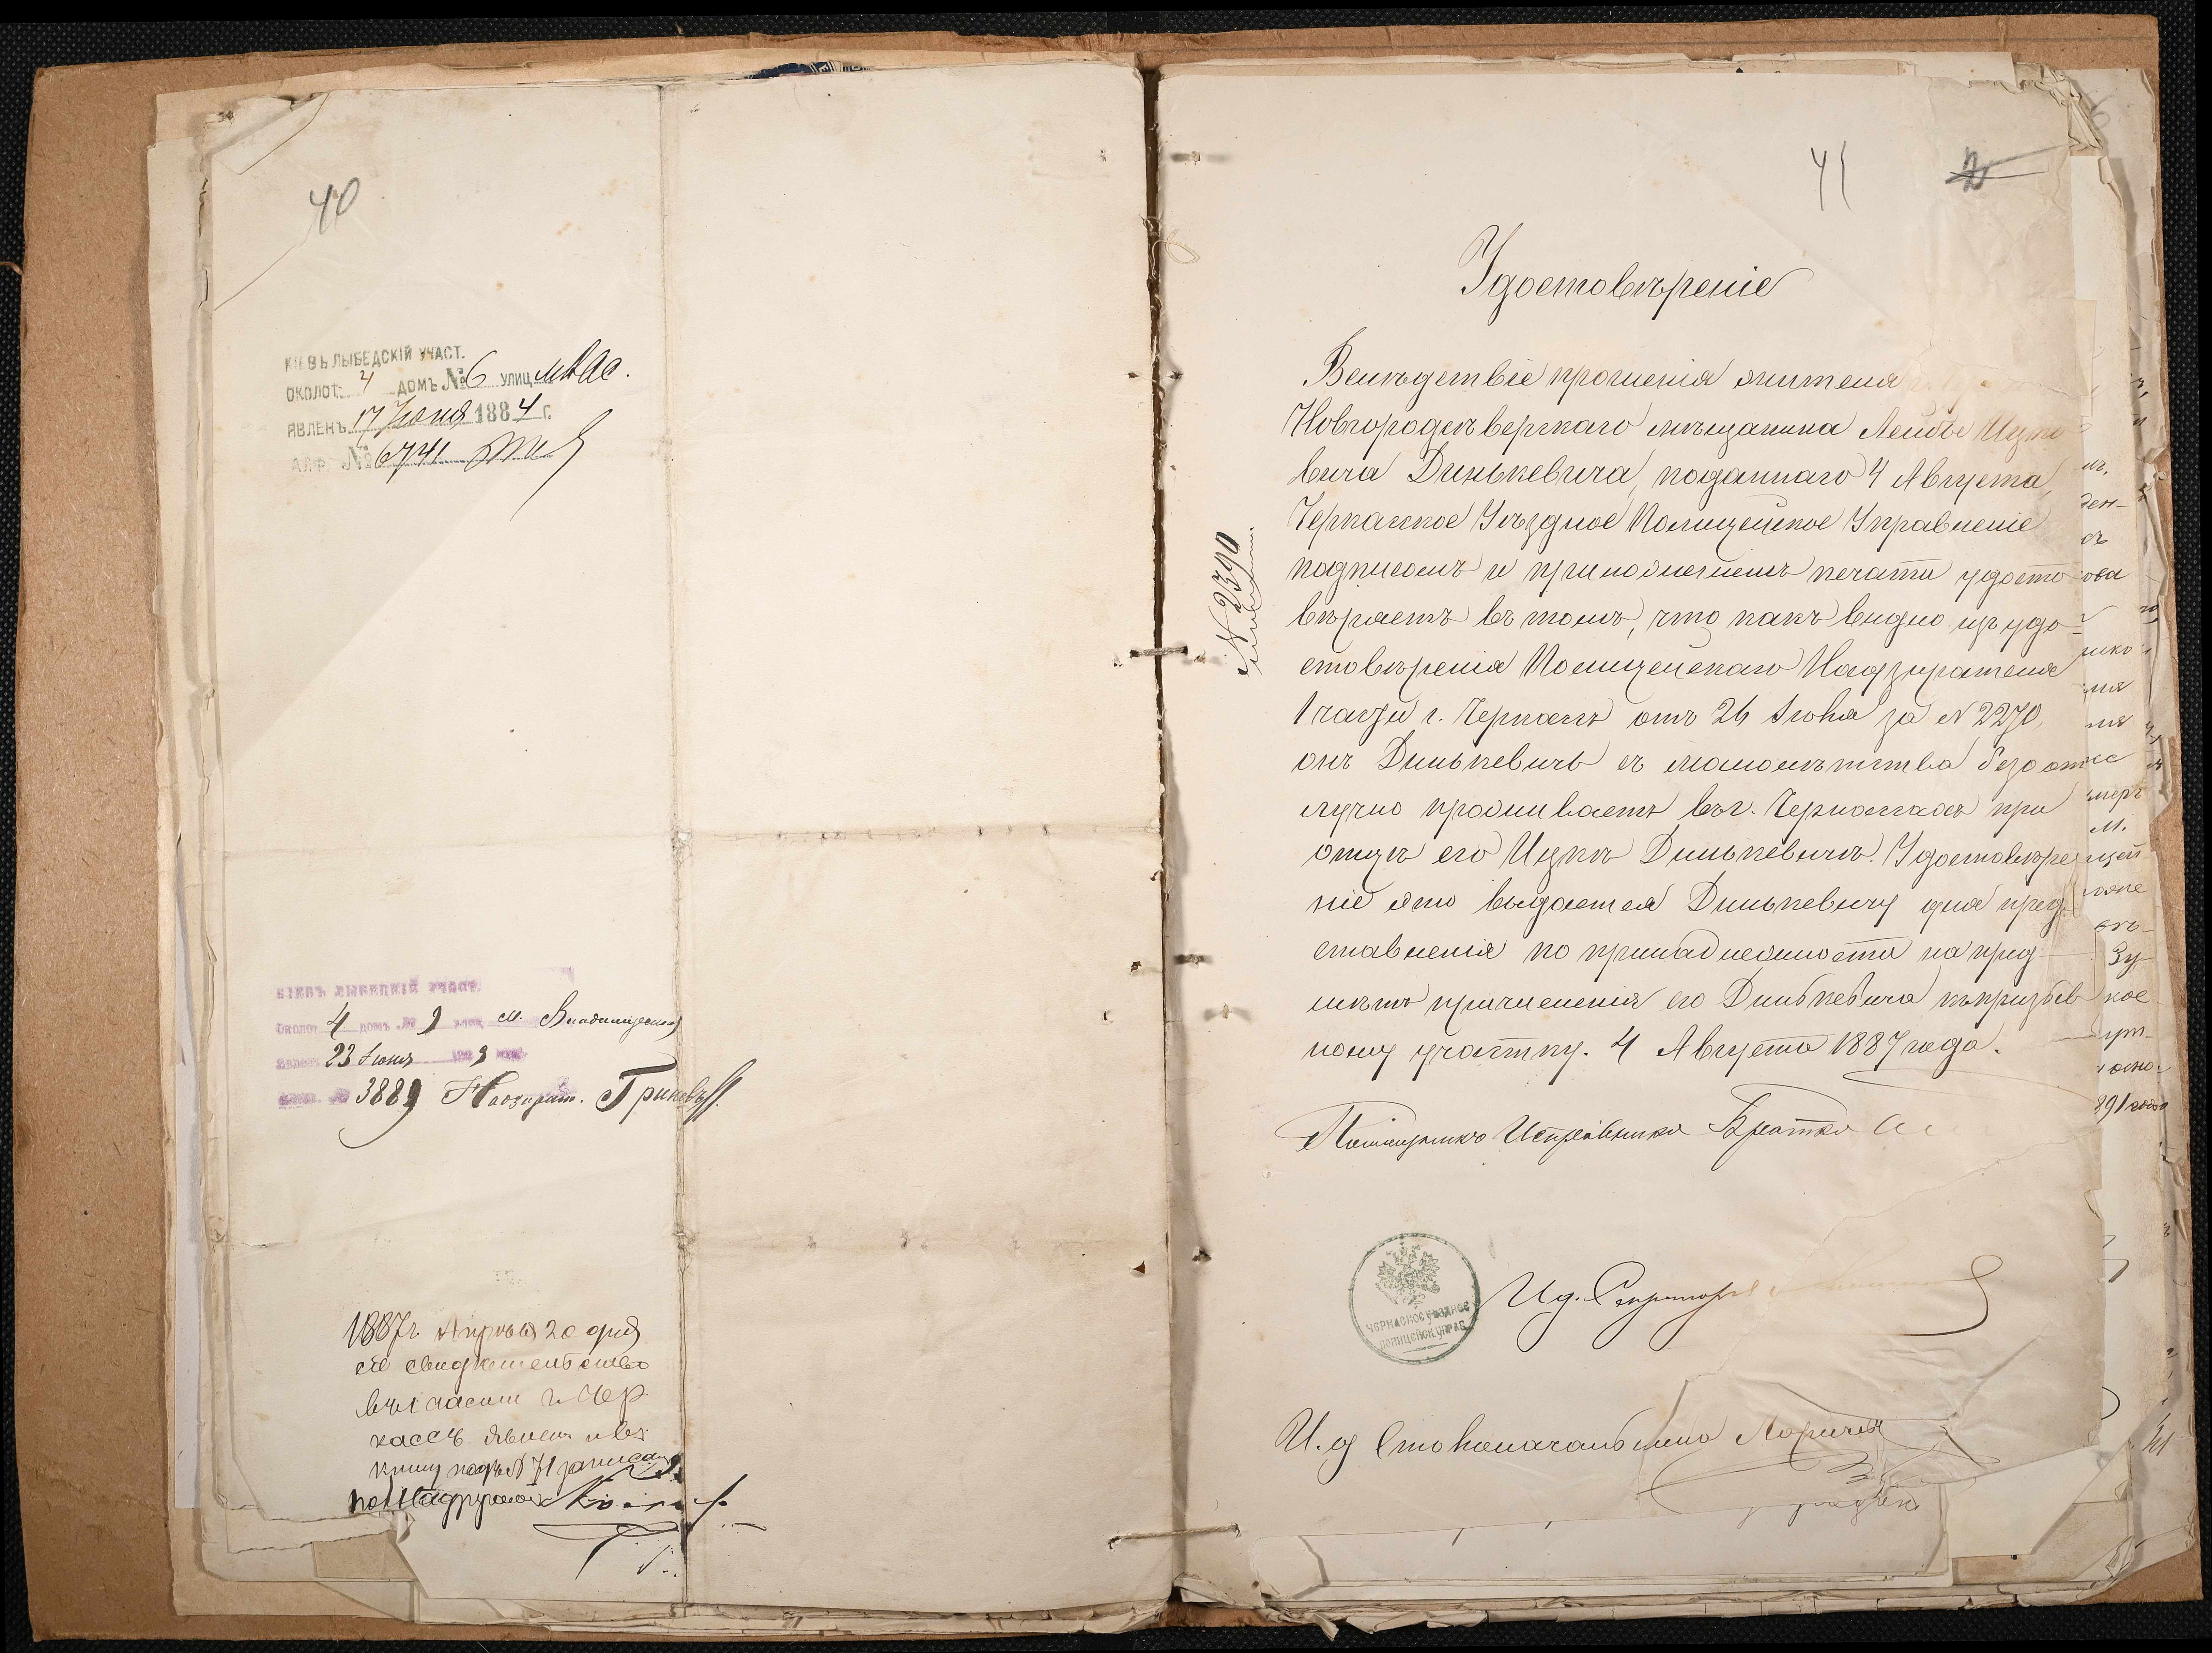 40
КІЕВЪ ЛЫБЕДСКІЙ УЧАСТ.
ОКОЛОТ. 4 ДОМЪ № 6 УЛИЦ
ЯВЛЕНЪ 17 Іюня 1884 г.
АЛФ. № 6741
КІЕВЪ ЛЫБЕДСКІЙ УЧАСТ.
Околот 4 домъ № 9 улиц М. Владимірской
Явленъ 23 Іюня
№ 3889 Надзират. Гриневъ
1887 г. Апрѣля 20 дня
сіе свидѣтельство
въ 1 части г. Чер
кассъ явлено и въ
книгу подъ № 71 записано
Пол. Надзиратель
41
2
Удостовѣреніе
Вслѣдствіе прошенія жителя
Новгородсѣверскаго мѣщанина Лейбы Ицко
вича Динькевича, поданнаго 4 Августа,
Черкасское Уѣздное Полицейское Управленіе
подписомъ и приложеніемъ печати удосто
вѣряетъ въ томъ, что какъ видно изъ удо-
стовѣренія Полицейскаго Надзирателя
1 части г. Черкассъ отъ 26 Іюня за № 2270,
онъ Динькевичъ съ малолѣтства безот
лучно проживаетъ въ г. Черкассахъ при
отцѣ его Ицкѣ Динькевичѣ. Удостовѣре
ніе это выдается Динькевичу для пред
ставленія по принадлежности на пред
мѣтъ причисленія его Динькевича къ призыв
ному участку. 4 Августа 1887 года.
№ 2390
Помощникъ Исправника Братко
ЧЕРКАСКОЕ УѢЗДНОЕ ПОЛИЦЕЙСК. УПРАВ.
И д. Секретаря
И. д Столоначальника
891 года